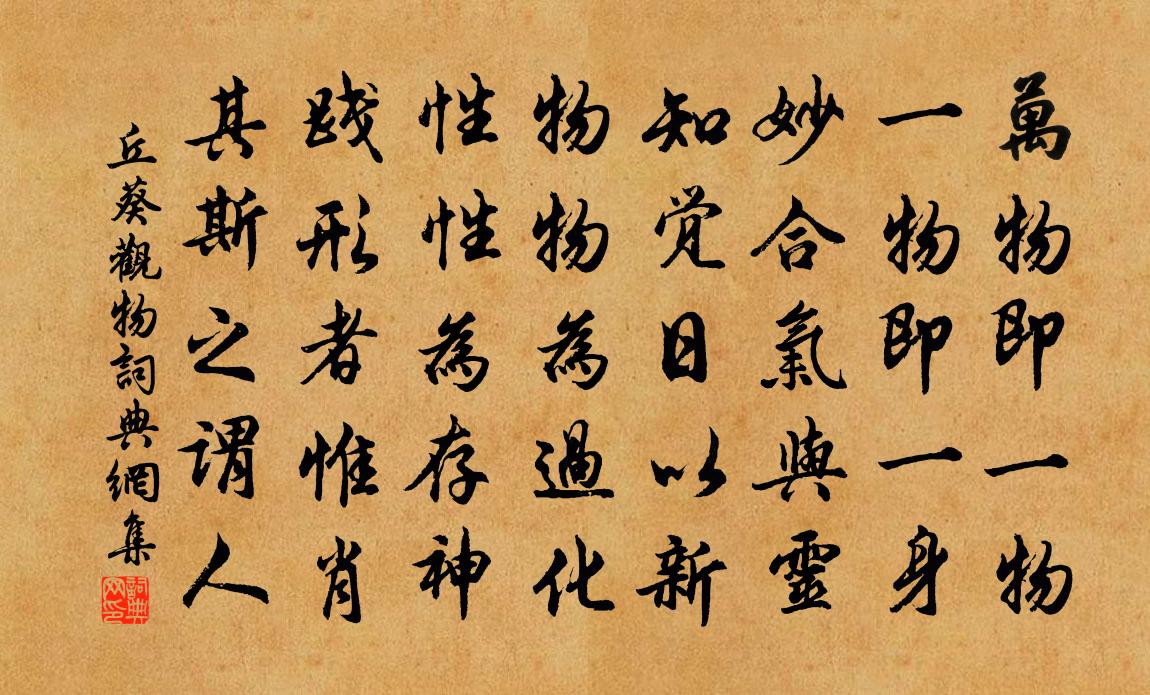 萬物即一物
一物即一身
妙合氣與靈
知覺日以新
物物為過化
性性為存神
践形者惟肖
其斯之謂人
丘葵觀物詞典網集
詞典网印